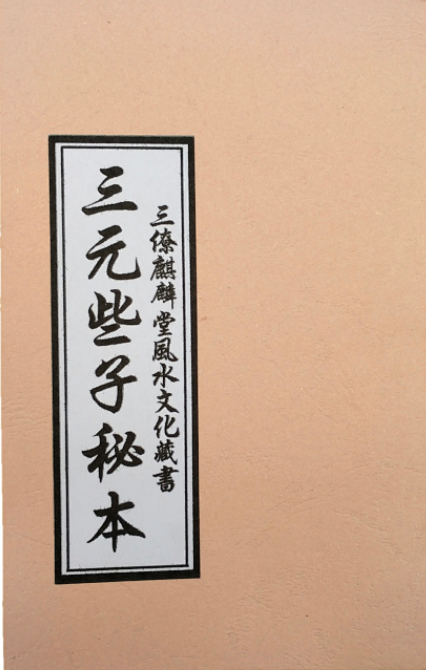 三僚麒麟堂風水文化藏書
三元些子秘本